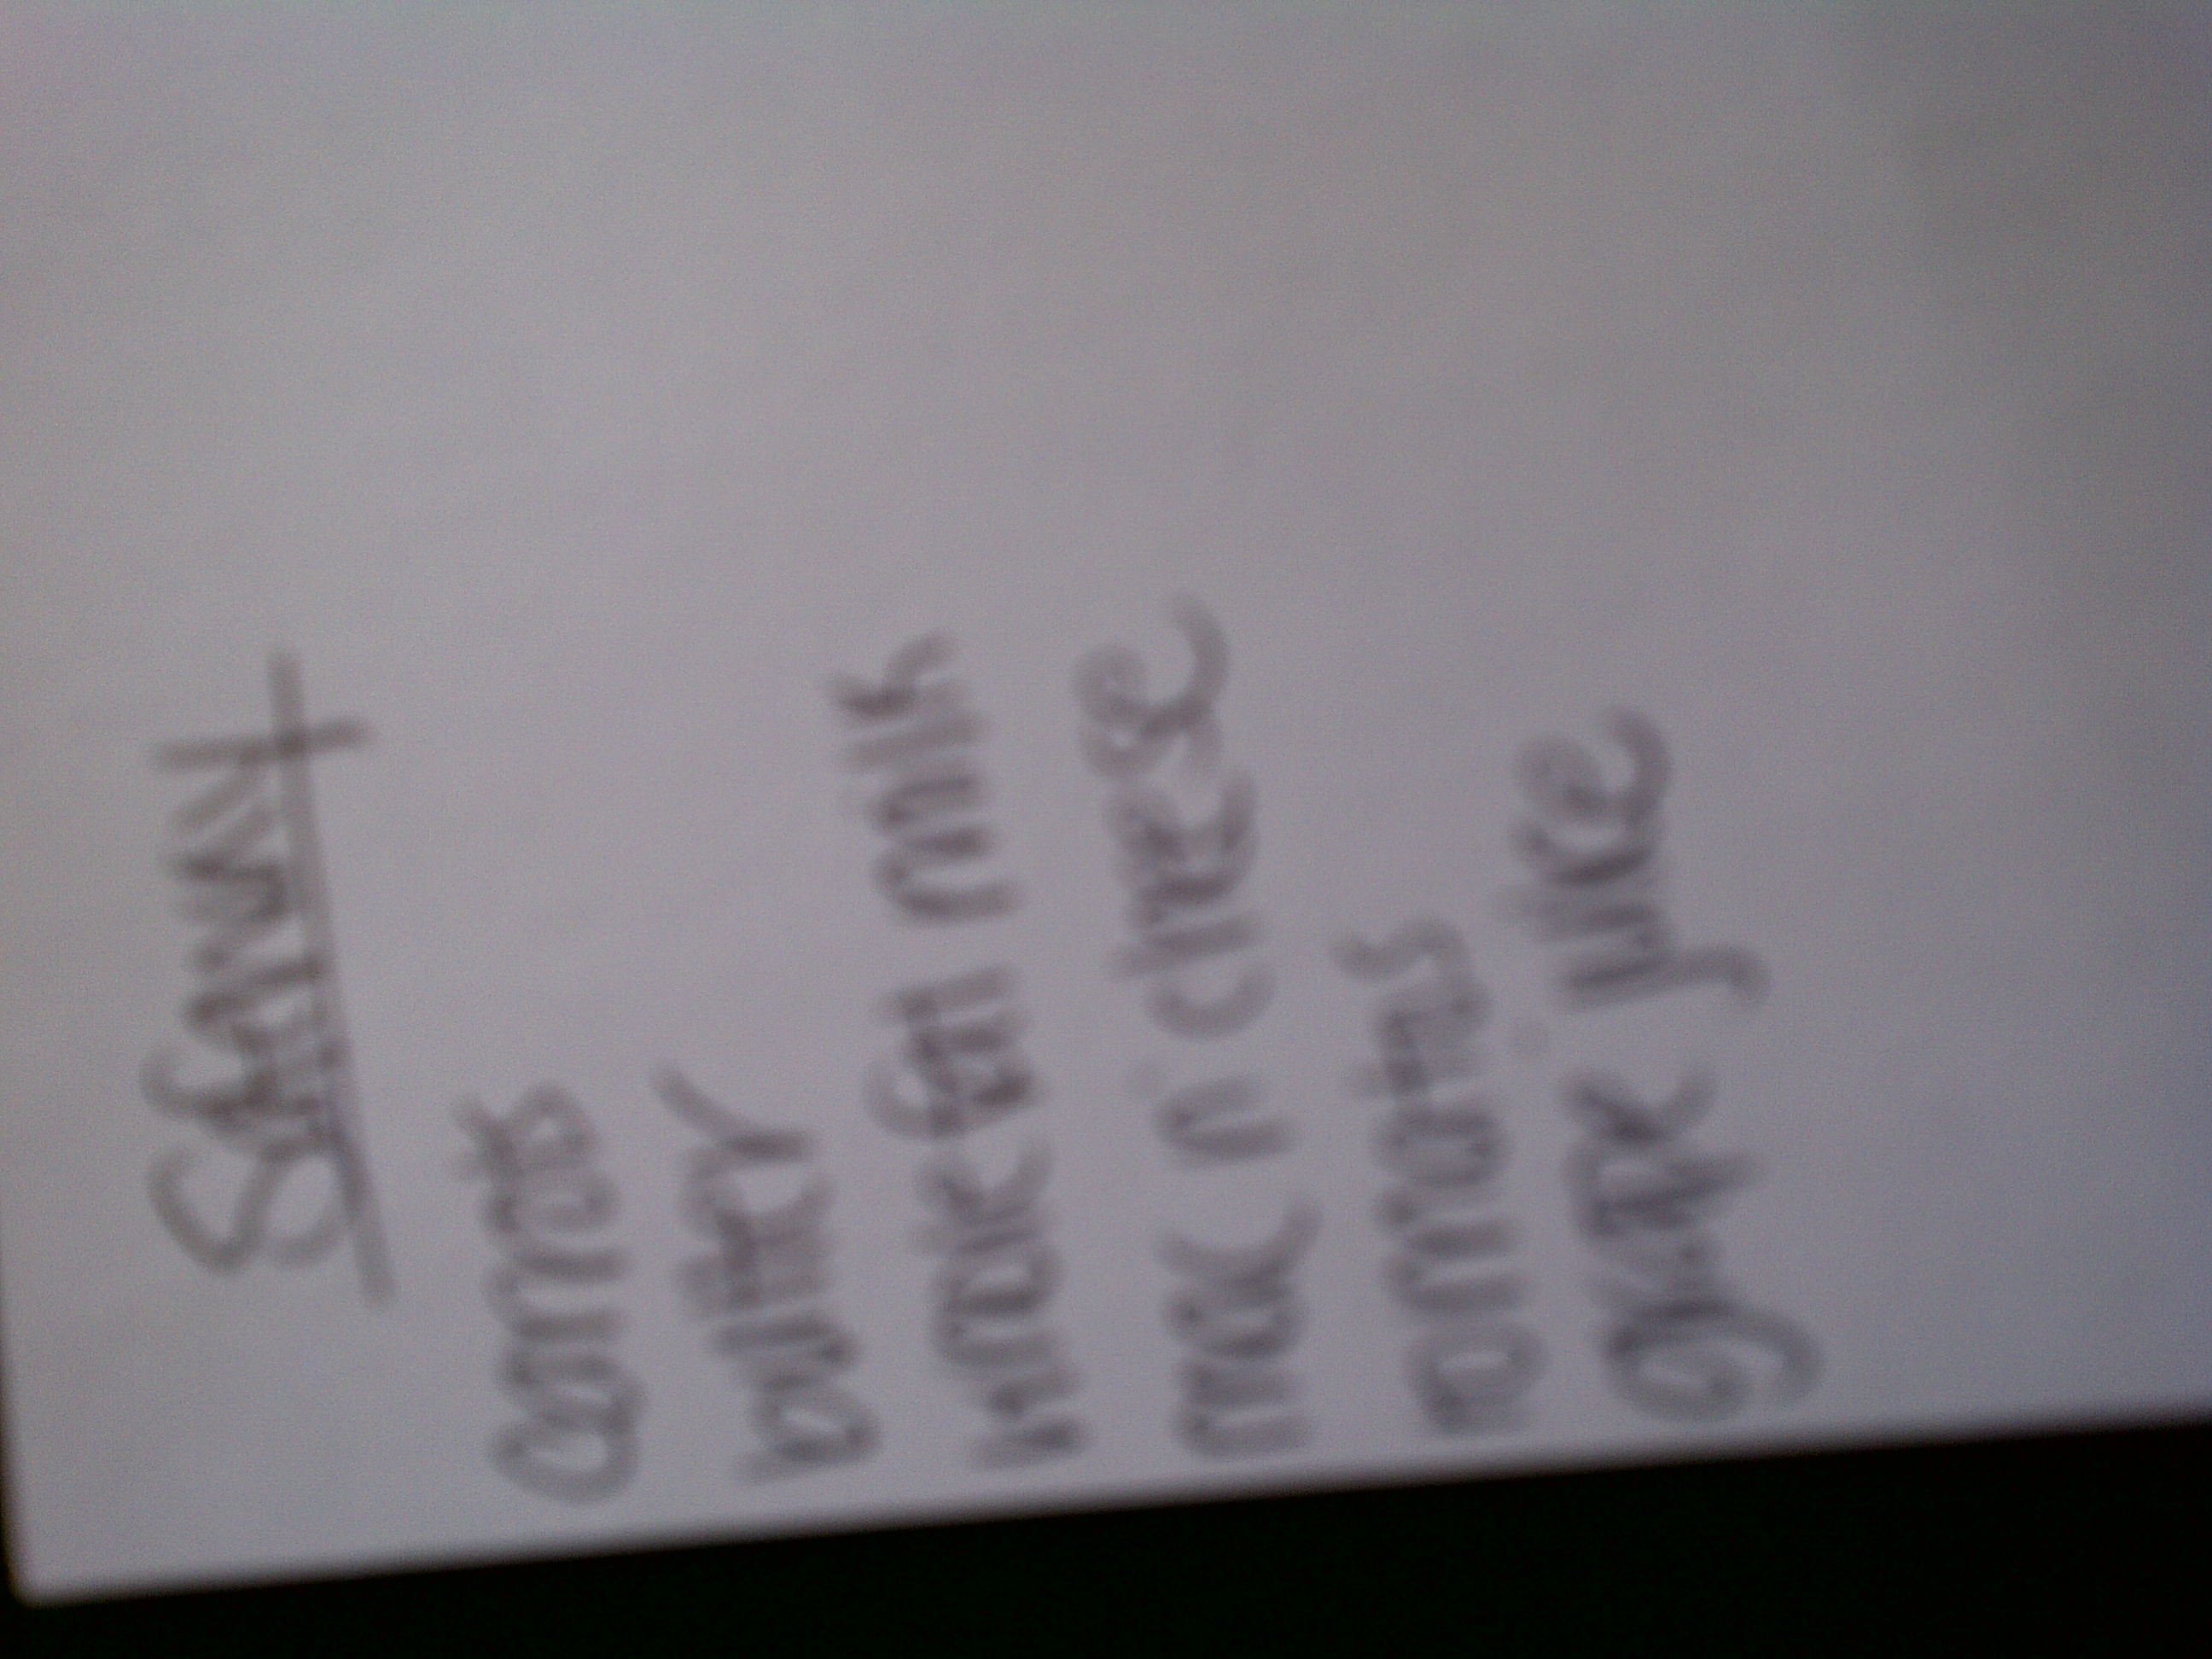 Safeway
carrots
butter
whole fat milk
mac n cheese
tomatos
grape juice